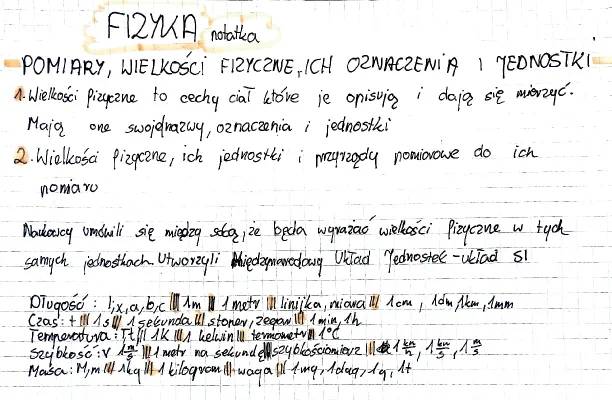 FIZYKA notatka
POMIARY, WIELKOŚCI FIZYCZNE, ICH OZNACZENIA I JEDNOSTKI
1. Wielkości fizyczne to cechy ciał które je opisują i dają się mierzyć.
Mają one swoje nazwy, oznaczenia i jednostki
2. Wielkości fizyczne, ich jednostki i przyrządy pomiarowe do ich
pomiaru
Naukowcy umówili się między sobą, że będą wyrażać wielkości fizyczne w tych
samych jednostkach. Utworzyli Międzynarodowy Układ Jednostek - układ SI
Długość: l, x, a, b, c ||| 1m || 1 metr || linijka, miara ||| 1cm, 1dm, 1km, 1mm
Czas: t ||| 1s ||| 1 sekunda ||| stoper, zegar ||| 1min, 1h
Temperatura: T, t ||| 1K ||| 1 kelwin ||| termometr ||| 1°C
Szybkość: v 1 m/s ||| 1 metr na sekundę ||| szybkościomierz ||| 1 km/h, 1 km/s, 1 m/s
Masa: M, m ||| 1kg ||| 1 kilogram ||| waga ||| 1mg, 1dag, 1g, 1t